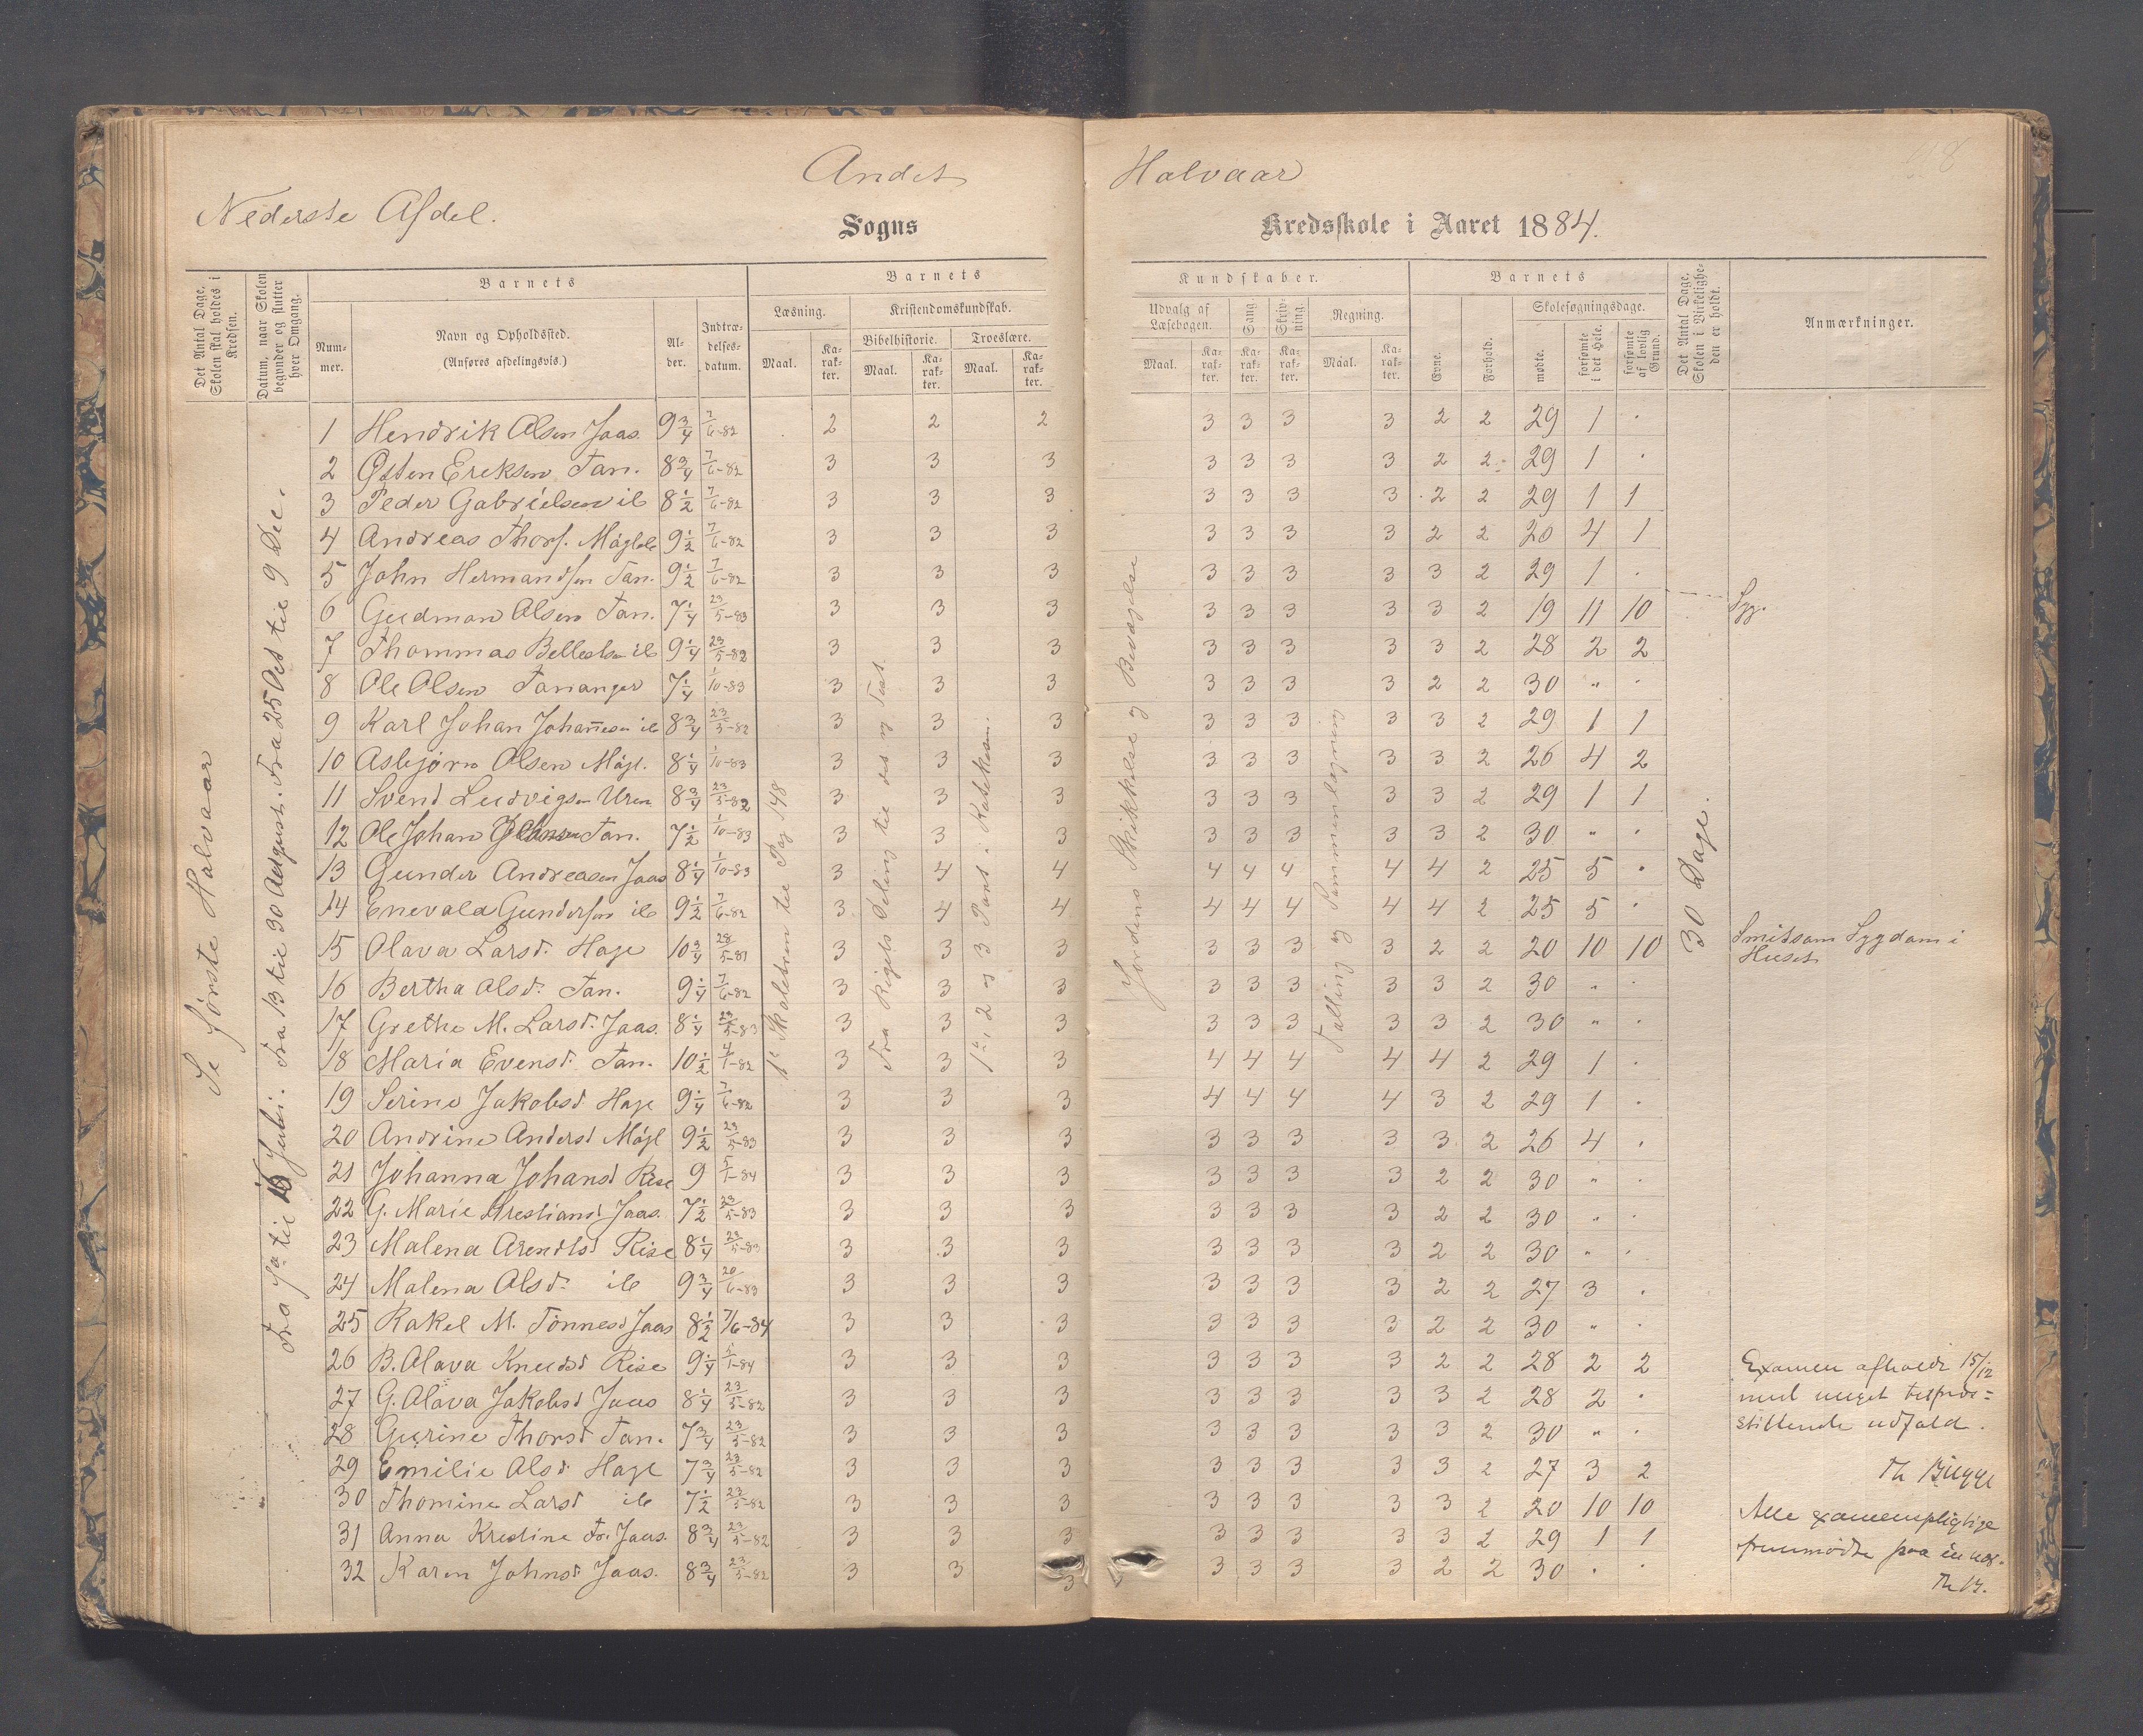 Andet Halvaar
Nederste Afdel.
Sogns Kredsskole i Aaret 1884.
Det Antal Dage, Skolen skal holdes i Kredsen.
Datum, naar Skolen begynder og slutter hver Omgang.
Barnets
Num-
mer.
Navn og Opholdssted.
(Anføres afdelingsvis.)
Al-
der.
Indtræ-
delses-
datum.
Barnets
Læsning.
Kristendomskundskab.
Bibelhistorie.
Troeslære.
Maal.
Ka-
rak-
ter.
Maal.
Ka-
rak-
ter.
Maal.
Ka-
rak-
ter.
Kundskaber.
Udvalg af
Læsebogen.
Sang.
Skriv-
ning.
Regning.
Maal.
Ka-
rak-
ter.
Ka-
rak-
ter.
Ka-
rak-
ter.
Maal.
Ka-
rak-
ter.
Barnets
Evne.
Forhold.
Skolesøgningsdage.
mødte.
forsømte i det Hele.
forsømte af lovlig Grund.
Det Antal Dage, Skolen i Virkeligheden er holdt.
Anmærkninger.
Se første Halvaar
Juli. Fra 13 til 30 August. Fra 25 Oct til 9 Dec.
1 Hendrik Olsen Jaas. 9 3/4 7/6-82 2 2 2 3 3 3 3 2 2 29 1 .
2 Østen Eriksen Tan. 8 3/4 7/6-82 3 3 3 3 3 3 3 2 2 29 1 .
3 Peder Gabrielsen ib 8 1/2 7/6-82 3 3 3 3 3 3 3 2 2 29 1 1
4 Andreas Thors. 9 1/2 7/6-82 3 3 3 3 3 3 3 2 2 20 4 1
5 John Hermandsen Tan. 9 1/2 7/6-82 3 3 3 3 3 3 3 3 2 29 1 .
6 Gudman Olsen Tan. 7 1/4 23/5-83 3 3 3 3 3 3 3 3 2 19 11 10 Syg.
7 Thommas ib 9 1/4 23/5-82 3 3 3 3 3 3 3 3 2 28 2 2
8 Ole Olsen Tananger 7 1/4 1/10-83 3 3 3 3 3 3 3 2 2 30 " .
9 Karl Johan Johannesen ib 8 3/4 23/5-82 3 3 3 3 3 3 3 3 2 29 1 1
10 Asbjørn Olsen Møgl. 8 1/4 1/10-83 3 3 3 3 3 3 3 3 2 26 4 2
11 Svend Ludvigsen Uren 8 3/4 23/5-82 3 3 3 3 3 3 3 3 2 29 1 1
12 Ole Johan Tan. 7 1/2 1/10-83 3 3 3 3 3 3 3 3 2 30 " .
13 Gunder Andreasen Jaas 8 1/4 1/10-83 3 4 4 4 4 4 4 4 2 25 5 .
14 Enevald Gundersen ib 9 1/2 7/6-82 3 4 4 4 4 4 4 4 2 25 5 .
15 Olava Larsd. Hage 10 3/4 28/5-81 3 3 3 3 3 3 3 2 2 20 10 10 Smitsom Sygdom i Huset
16 Bertha Olsd. Tan. 9 1/4 7/6-82 3 3 3 3 3 3 3 3 2 30 " .
17 Grethe M. Larsd. Jaas. 8 1/4 23/5-83 3 3 3 3 3 3 3 3 2 30 " .
18 Maria Evensd. Tan. 10 1/2 4/1-82 3 3 3 4 4 4 4 4 2 29 1 .
19 Serine Jakobsd Hage 9 1/4 7/6-82 3 3 3 4 4 4 4 3 2 29 1 .
20 Andrine Andersd Møgl 9 1/2 23/5-83 3 3 3 3 3 3 3 3 2 26 4 .
21 Johanna Johansd Risе 9 5/1-84 3 3 3 3 3 3 3 2 2 30 " .
22 G. Marie Krestiansd Jaas. 7 1/2 23/5-83 3 3 3 3 3 3 3 2 2 30 " .
23 Malena Arendtsd Rise 8 1/4 23/5-83 3 3 3 3 3 3 3 2 2 30 " .
24 Malena Olsd. ib 9 3/4 20/6-83 3 3 3 3 3 3 3 2 2 27 3 .
25 Rakel M. Tønnesd Jaas 8 1/2 7/6-84 3 3 3 3 3 3 3 2 2 30 " .
26 B. Olava Knudsd Rise 9 1/4 5/1-84 3 3 3 3 3 3 3 2 2 28 2 2
27 G. Olava Jakobsd Jaas 8 1/4 23/5-82 3 3 3 3 3 3 3 3 2 28 2 .
28 Gurine Thorsd Tan. 7 3/4 23/5-82 3 3 3 3 3 3 3 3 2 30 " .
29 Emilie Olsd. Hage 7 3/4 23/5-82 3 3 3 3 3 3 3 3 2 27 3 2
30 Thomine Larsd ib 7 1/2 23/5-82 3 3 3 3 3 3 3 3 2 20 10 10
31 Anna Krestine Jaas. 8 3/4 23/5-82 3 3 3 3 3 3 3 3 2 29 1 1
32 Karen Johnsd Jaas. 8 3/4 23/5-82 3 3 3 3 3 3 3 2 2 30 .
til Pag 148
Fra Rigets Deling til det ny Test.
1ste, 2 og 3 Part. Katekesen.
Jordens Skikkelse og Bevægelse
Talling og Sammenlægning
30 Dage.
Examen afholdt 15/12
med meget tilfreds=
stillende udfald.
Th Bugge
Alle examenspligtige
fremmødte paa en nær.
Th B.